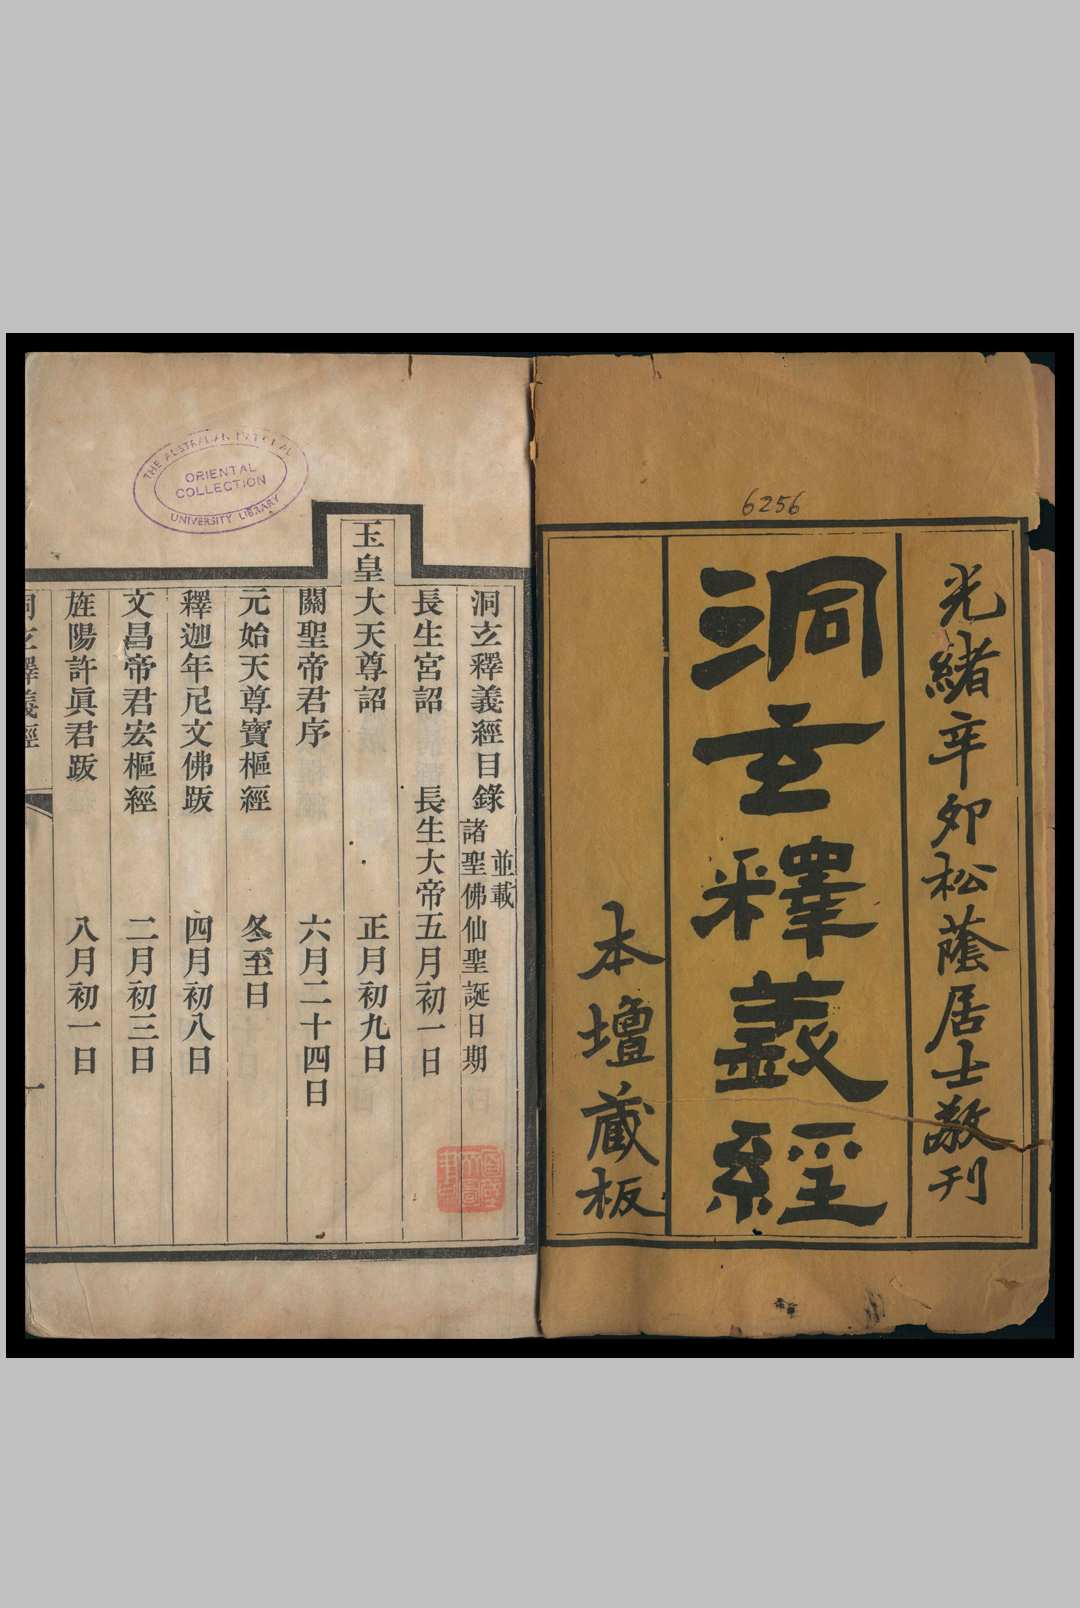 6256
光緒辛卯松蔭居士敬刊
洞玄釋義經
本壇藏板
THE AUSTRALIAN NATIONAL
UNIVERSITY LIBRARY
ORIENTAL
COLLECTION
洞玄釋義經目錄 並載諸聖佛仙聖誕日期
長生宮詔 長生大帝五月初一日
玉皇大天尊詔 正月初九日
關聖帝君序 六月二十四日
元始天尊寶樞經 冬至日
釋迦年尼文佛跋 四月初八日
文昌帝君宏樞經 二月初三日
旌陽許眞君跋 八月初一日
洞玄釋義經
一